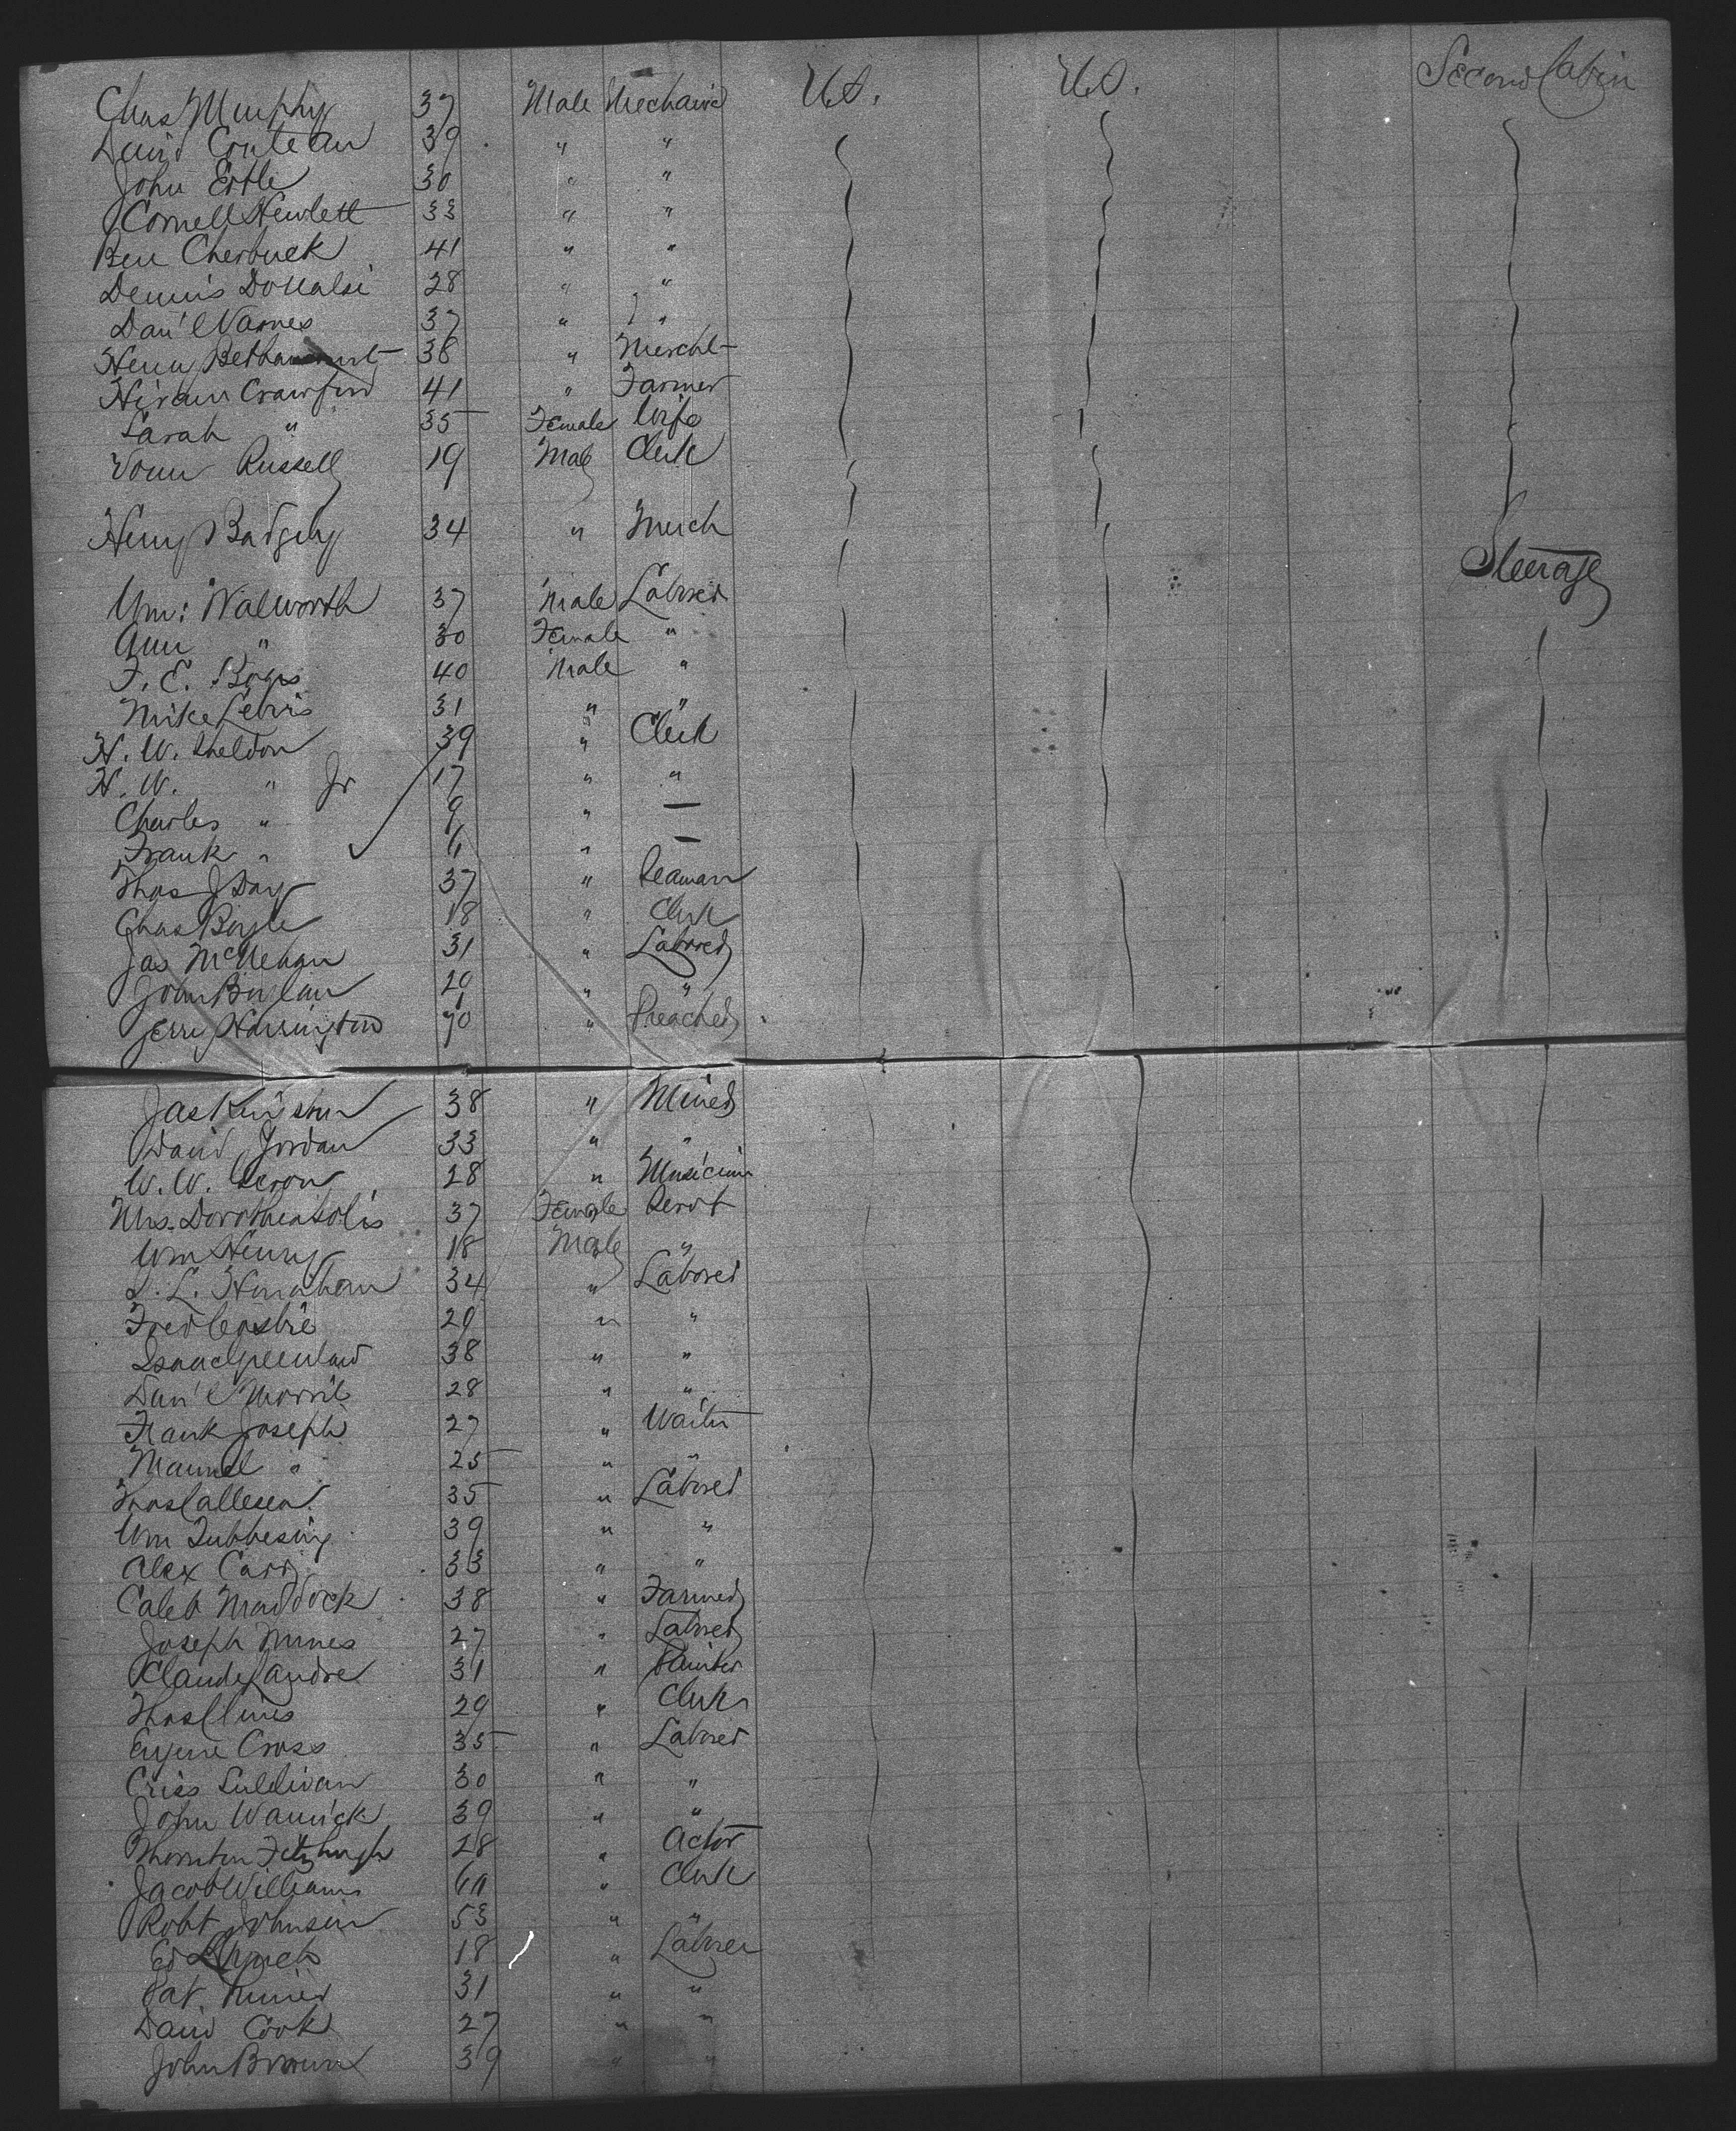 Chas Murphy 37 Male Mechanic U.S. U.S. Second Cabin
David 39 " "
John Ertle 30 " "
Cornell Hewlett 33 " "
Ben Cherbuck 41 " "
Dennis 28 " "
Dan'l 37 " "
Henry Bethancourt 38 " Mercht
Hiram Crawford 41 " Farmer
Sarah " 35 Female Wife
Russell 19 Male Clerk
Henry Badgely 34 " Merch
Steerage
Wm: Walworth 37 Male Laborer
Ann " 30 Female "
F. E. 40 Male "
Mike Lewis 31 " "
H. W. Sheldon 39 " Clerk
H. W. " Jr 17 " "
Charles " 9 " —
Frank " 6 " —
Thos J Day 37 " Seaman
Chas Boyle 18 " Clerk
Jas 31 " Laborer
John 29 " "
Jerry Harrington 70 " Preacher
Jas 38 " Miner
David Jordan 33 " "
W. W. 28 " Musician
Mrs. Dorothea Solis 37 Female Servt
Wm Henry 18 Male "
34 " Laborer
Fred 29 " "
Isaac Greenlaw 38 " "
Dan'l Morril 28 " "
Frank Joseph 27 " Waiter
Manuel " 25 " "
Thos 35 " Laborer
Wm Lubbesing 39 " "
Alex Carr 33 " "
Caleb Maddock 38 " Farmer
Joseph Nunes 27 " Laborer
Claude Landre 31 " Painter
Thos Clines 29 " Clerk
Eugene Cross 35 " Laborer
Criss Sullivan 30 " "
John Warrick 39 " "
Thornton Fitzhugh 28 " Actor
Jacob Williams " Clerk
Robt Johnson 53 " "
Ed Lynch 18 " Laborer
Pat. 31 " "
David Cook 27 " "
John Brown 39 " "